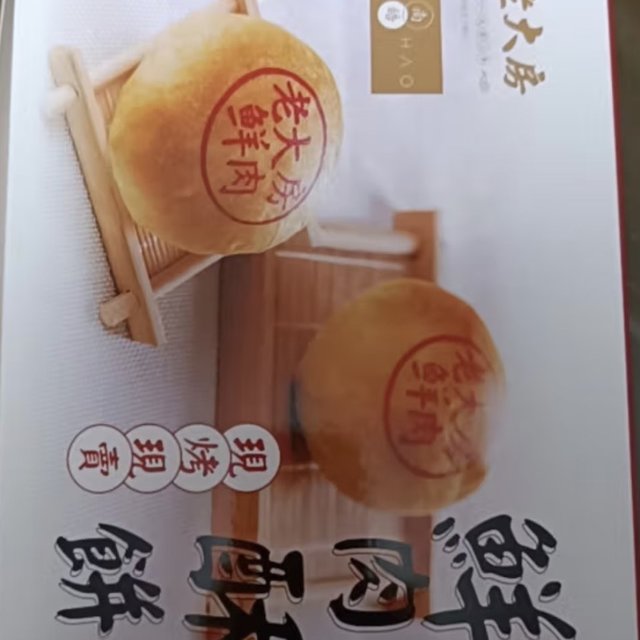 大房
HAO
老大房
鮮肉
老大
鮮肉
現烤現賣
鮮肉酥餅